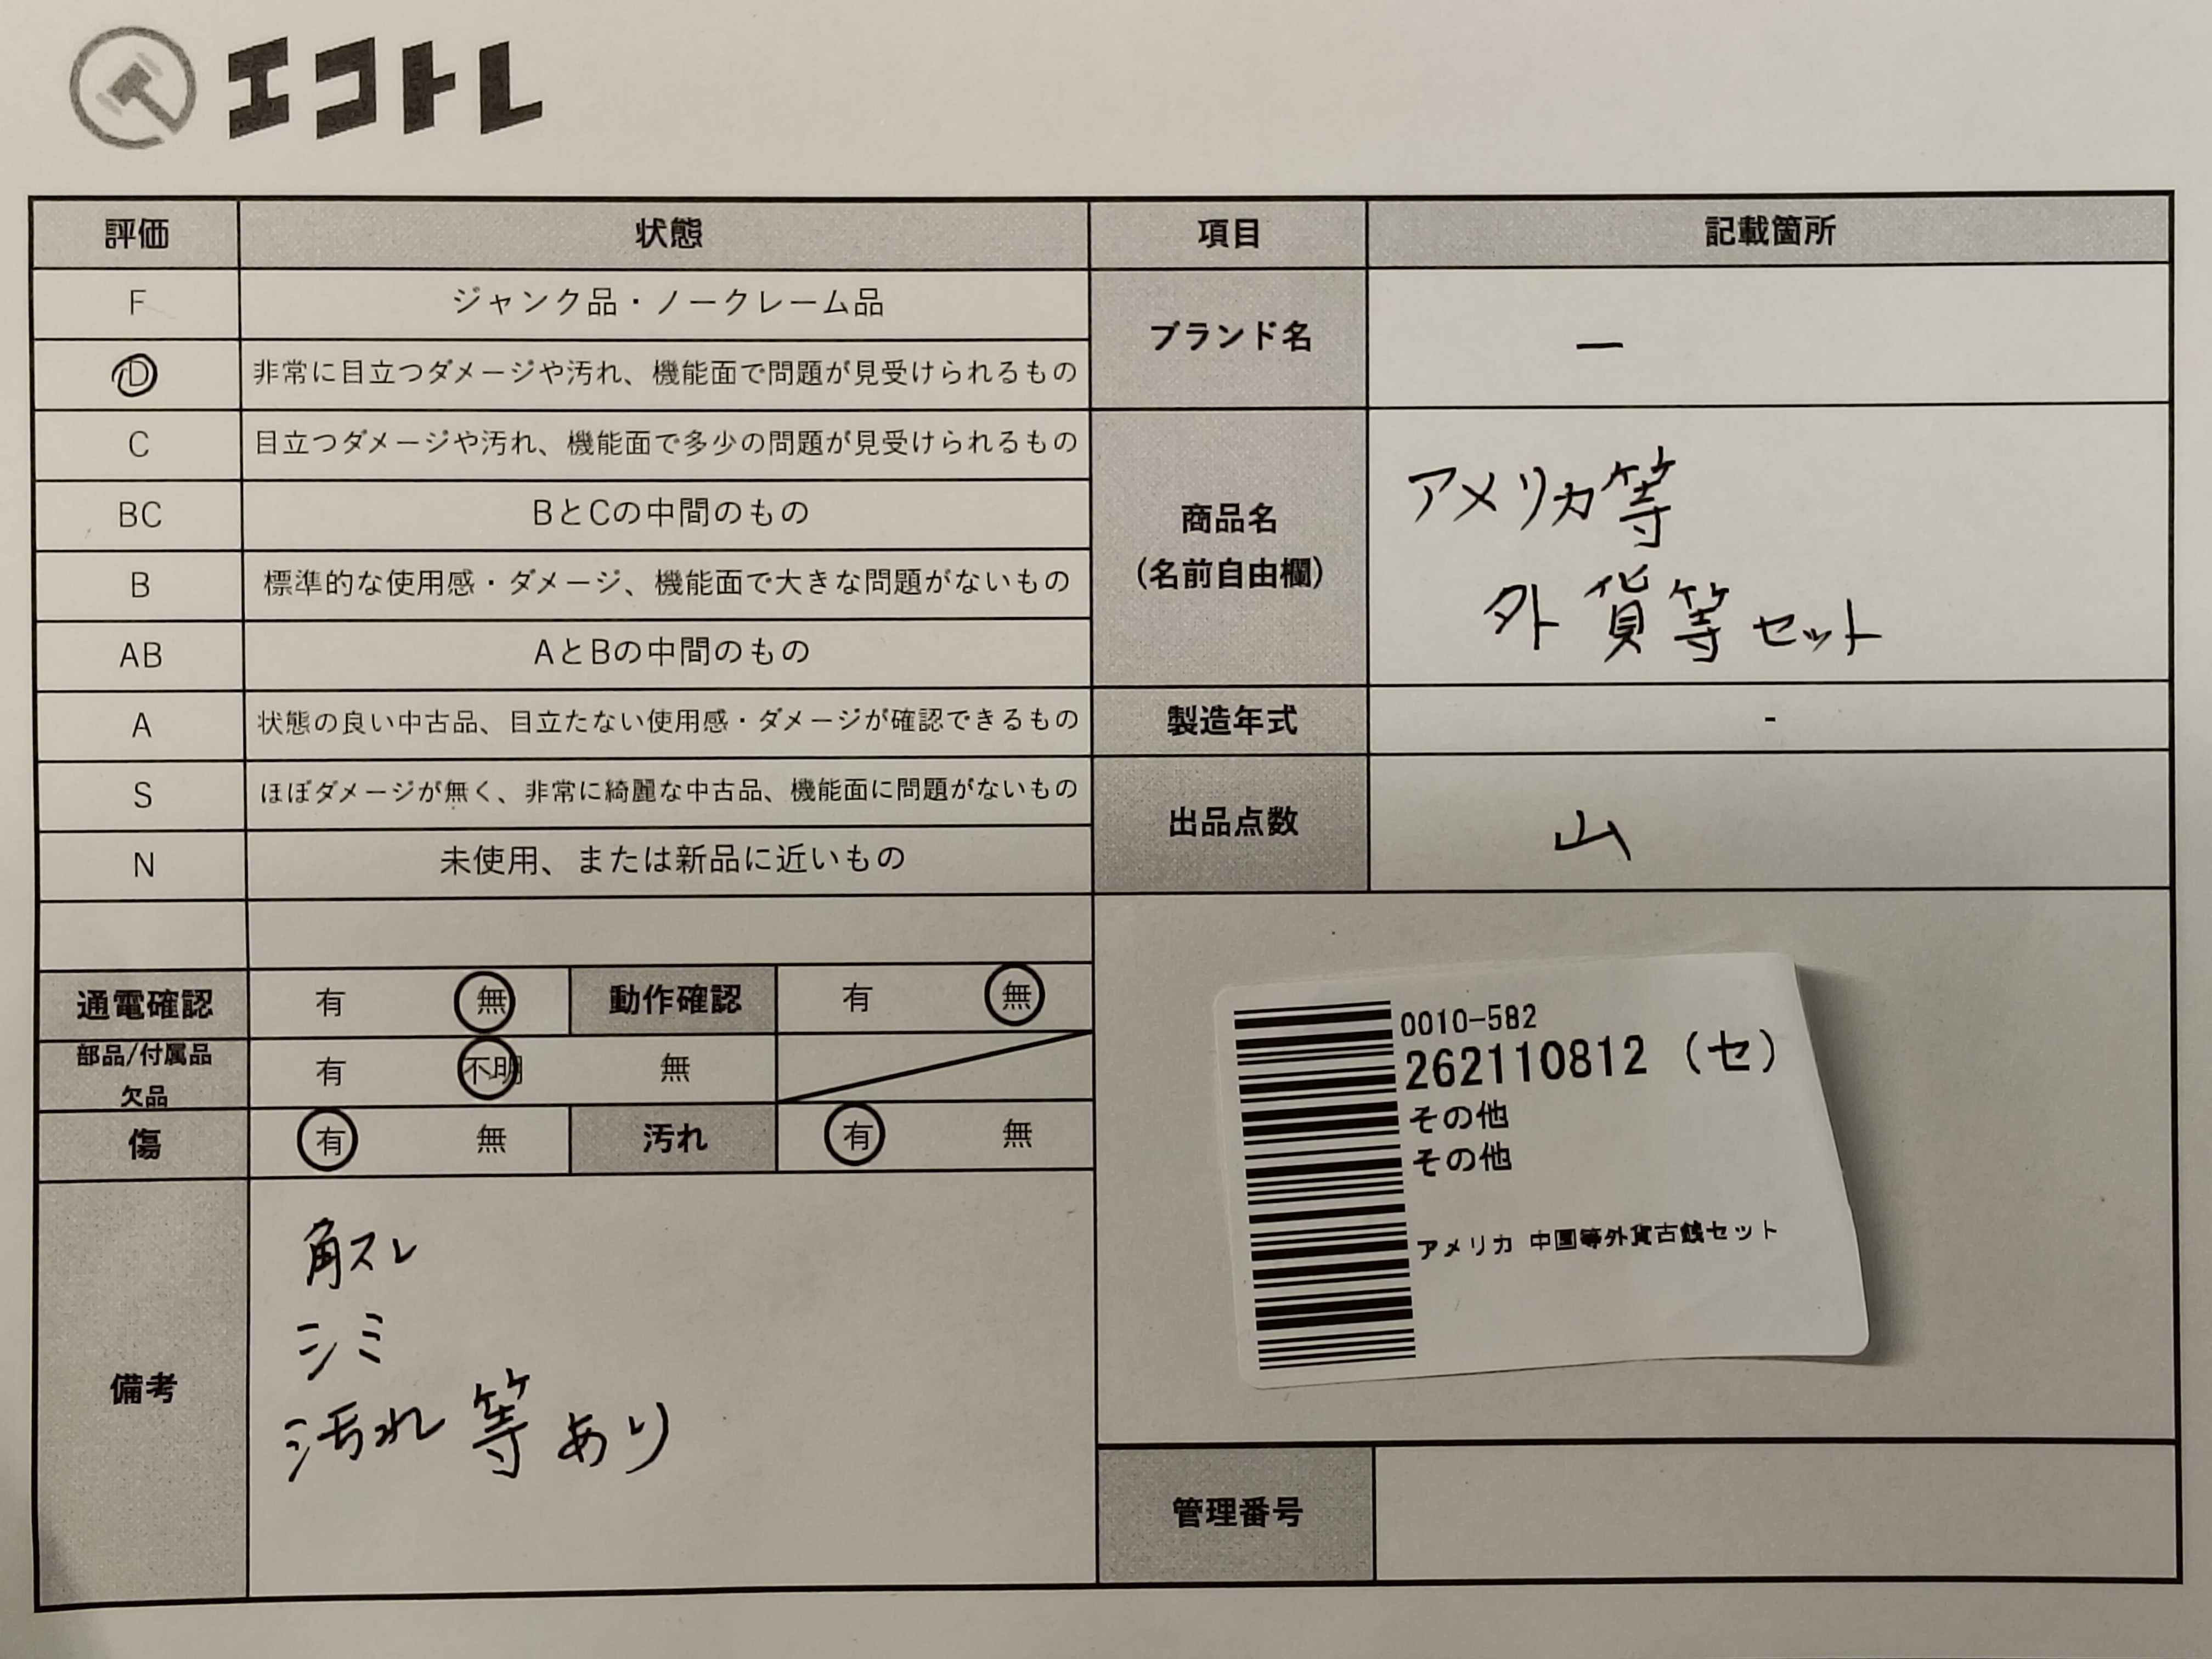 エコトレ
評価 状態 項目 記載箇所
F ジャンク品・ノークレーム品
D 非常に目立つダメージや汚れ、機能面で問題が見受けられるもの
ブランド名 ー
C 目立つダメージや汚れ、機能面で多少の問題が見受けられるもの
BC BとCの中間のもの
B 標準的な使用感・ダメージ、機能面で大きな問題がないもの
AB AとBの中間のもの
商品名
(名前自由欄)
アメリカ等
外貨等セット
A 状態の良い中古品、目立たない使用感・ダメージが確認できるもの
製造年式 -
S ほぼダメージが無く、非常に綺麗な中古品、機能面に問題がないもの
N 未使用、または新品に近いもの
出品点数 山
通電確認 有 無 動作確認 有 無
部品/付属品
欠品
有 不明 無
傷 有 無 汚れ 有 無
備考
角スレ
シミ
汚れ等あり
0010-582
262110812 (セ)
その他
その他
アメリカ 中国等外貨古銭セット
管理番号